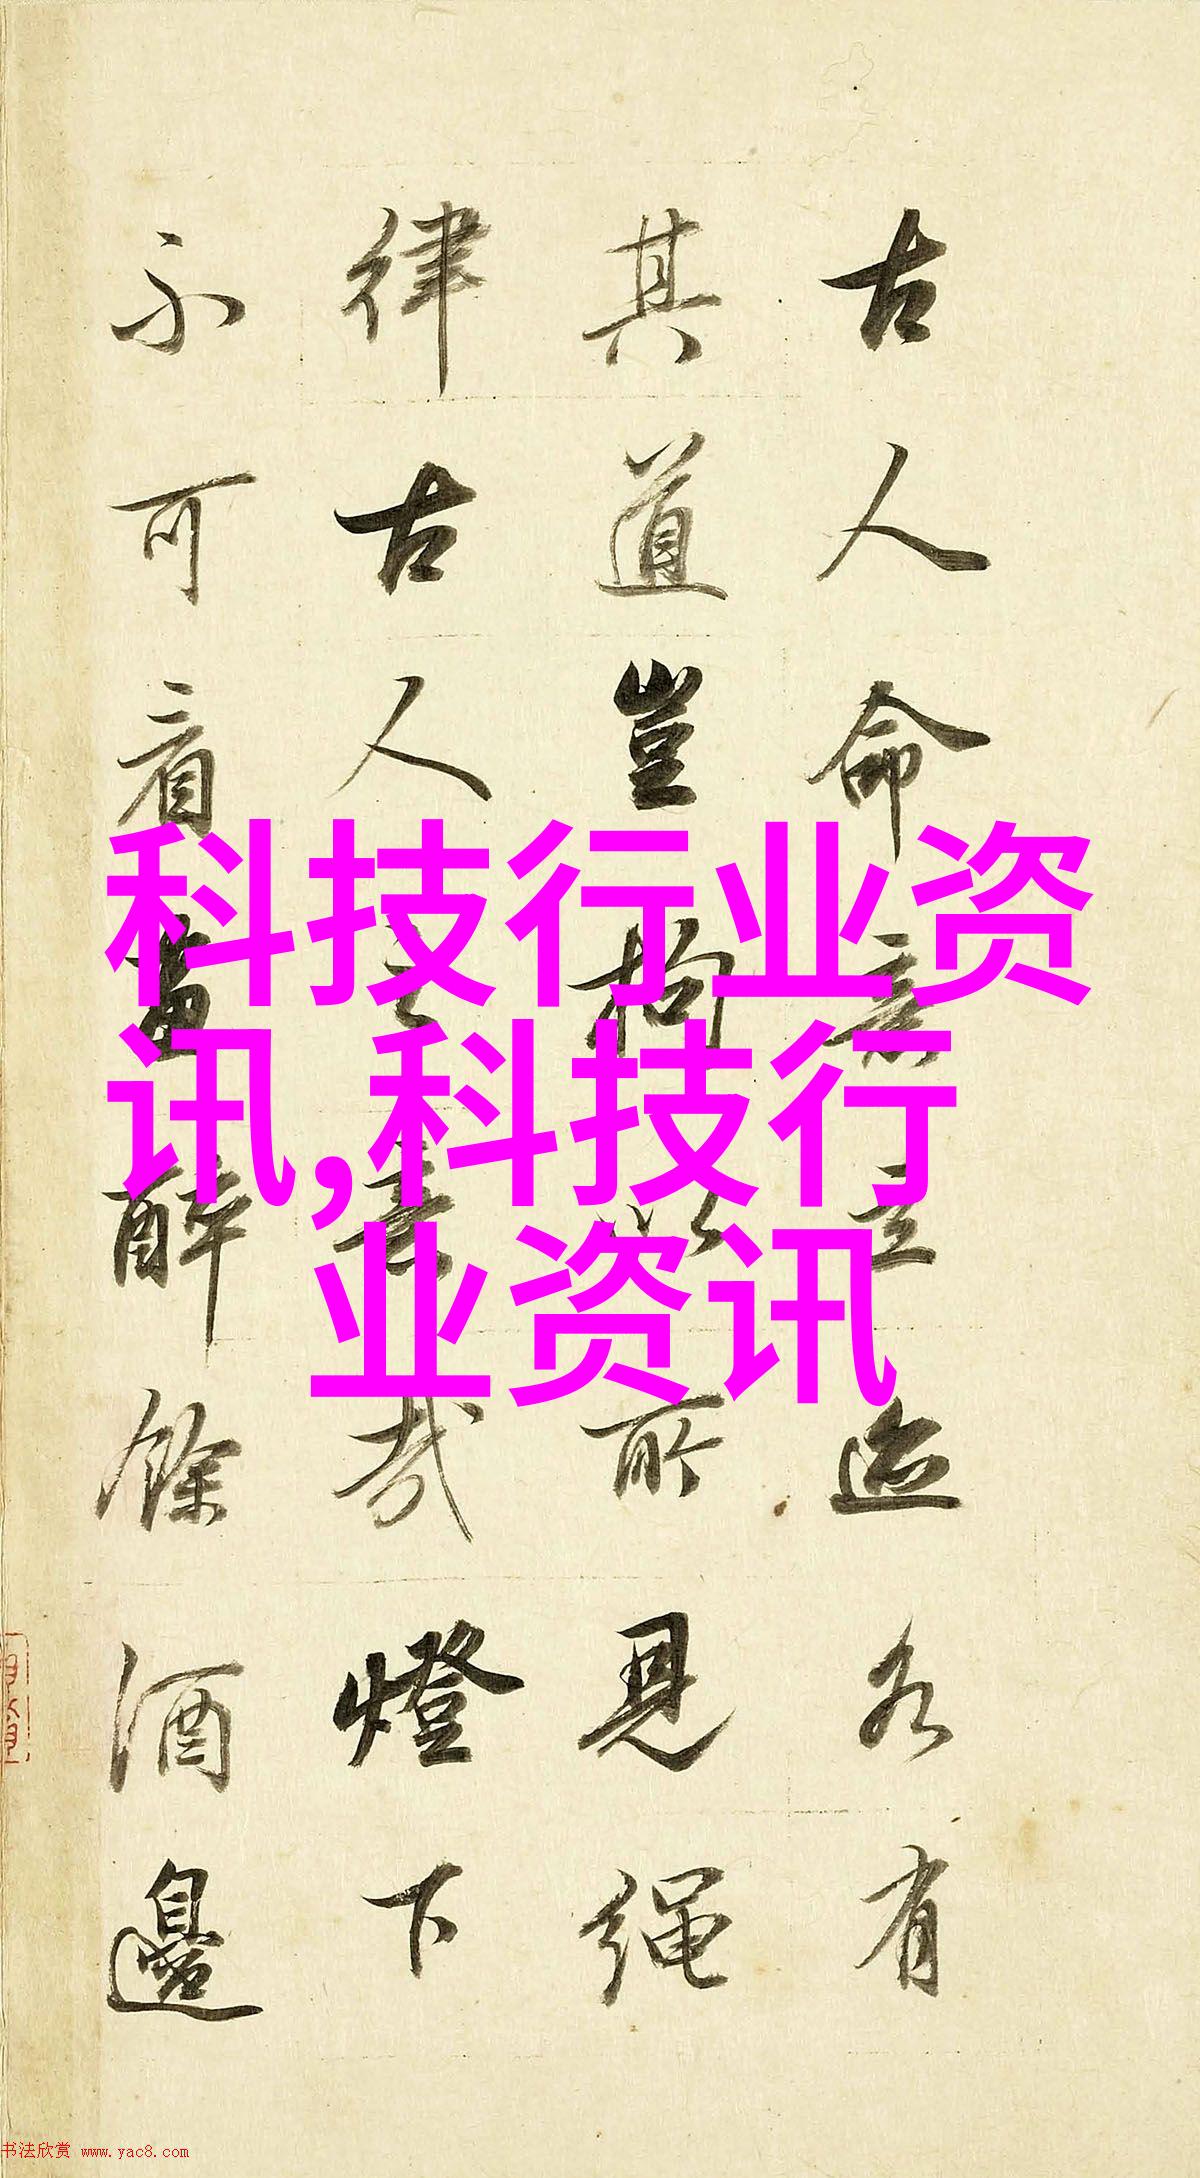 古人命意立迹各有
其道豈拘以所見繩
律古人之意哉燈下
不可看畫醉餘酒邊
科技行业资
讯,科技行
业资讯
书法欣赏 www.yac8.com